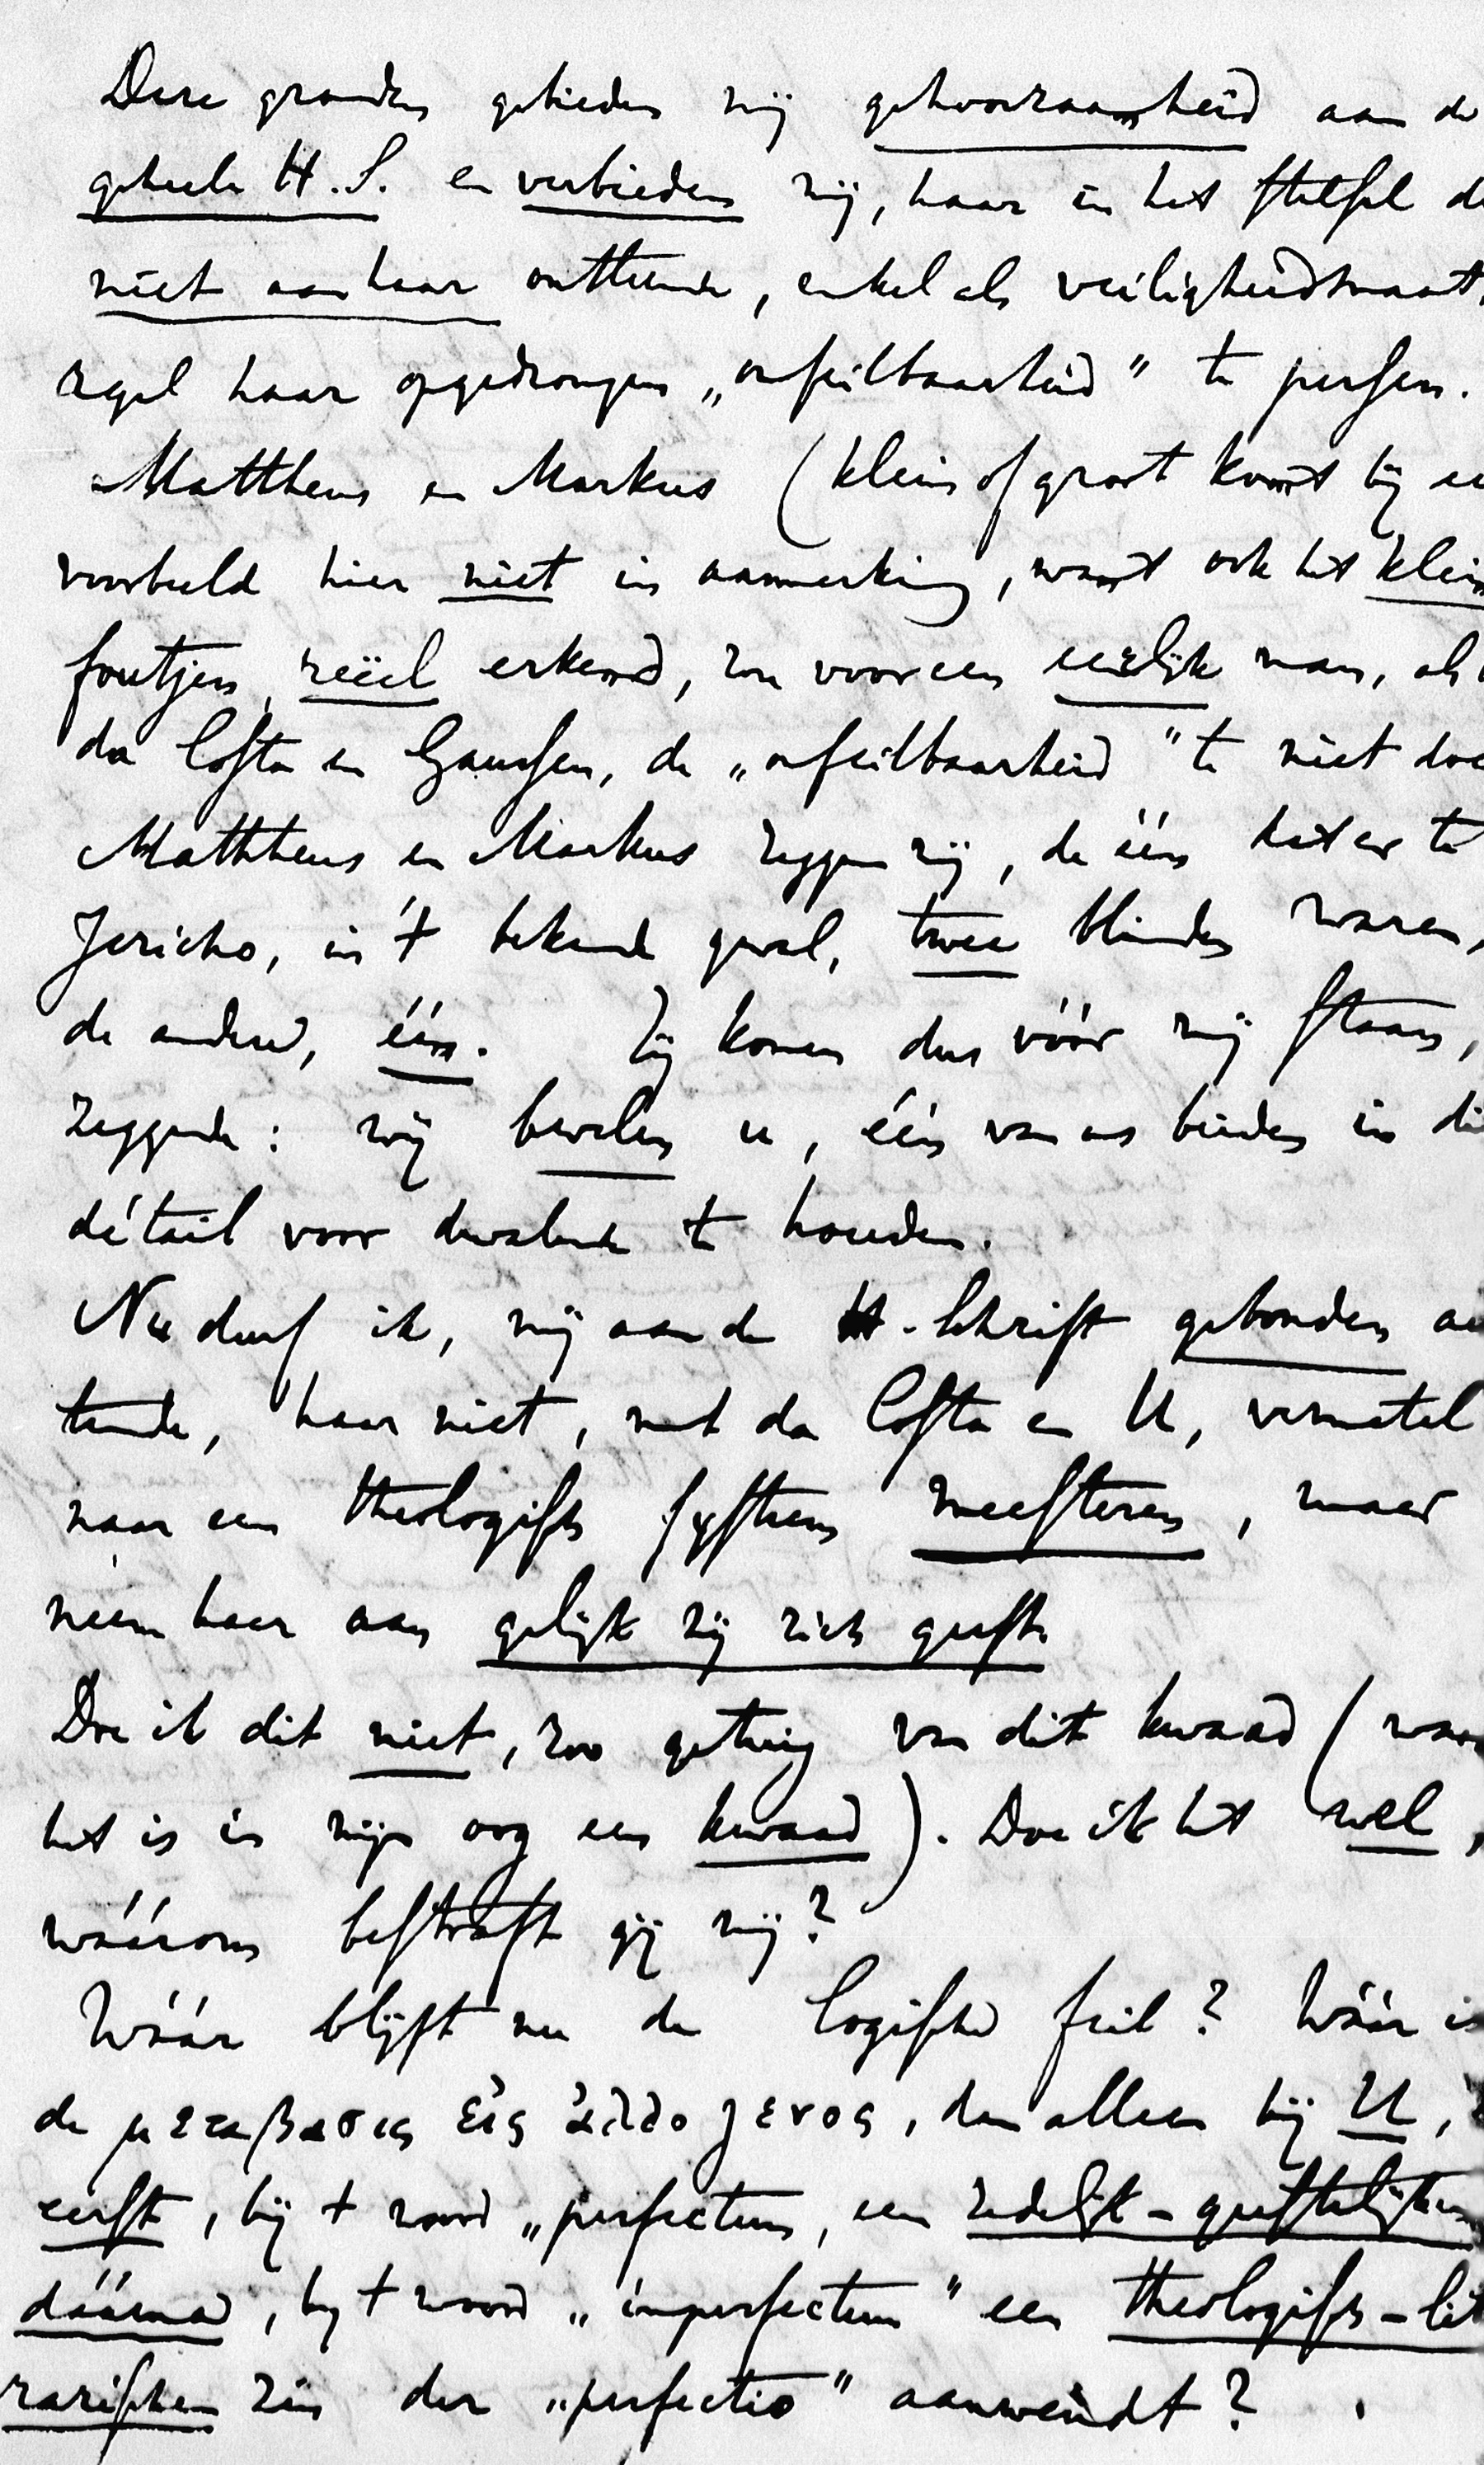 Deze gronden gebieden mij gehoorzaamheid aan de
geheele H.S. en verbieden mij, haar in het stelsel de
niet aan haar ontleende, enkel als veiligheidsmaat,
regel haar opgedrongen „onfeilbaarheid” te persen.
Mattheus en Markus (klein of groot komt bij ee
voorbeeld hier niet in aanmerking, want ook het klein
foutjen, reëel erkend, zou voor een eerlijk man, als
da Costa en Gaussen, de „onfeilbaarheid” te niet doe
Matthheus en Markus zeggen mij, de één dat er te
Jericho, in 't bekende geval, twee blinden waren,
de andere, één. Zij komen dus vóór mij staan,
zeggende: wij bevelen u, één van ons beiden in di
détail voor dwalende te houden.
Nu durf ik, mij aan de H. Schrift gebonden ac
tende, haar niet, met da Costa en U, vermetel
naar een theologisch systeem meesteren, maar
neem haar aan gelijk zij zich geeft.
Doe ik dit niet, zoo getuig van dit kwaad (want
het is in mijn oog een kwaad). Doe ik het wel,
wáárom bestraft gij mij?
Wáár blijft nu de logische feil? Wáár is
de μεταβασις εἰς ἀλλο γενος, dan alleen bij U,
eerst, bij 't woord „perfectum, een zedelijk-geestelijken
dáárna, bij 't woord „imperfectum” een theologisch-lit
rarischen zin der „perfectio” aanwendt?